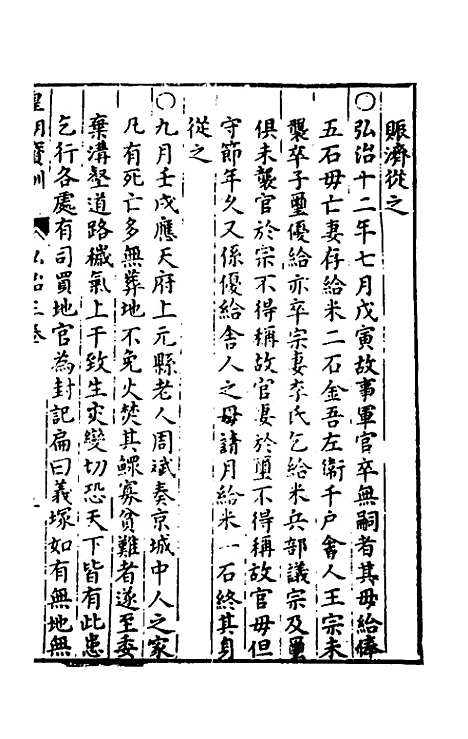 賑濟從之
○弘治十二年七月戊寅故事軍官卒無嗣者其母給俸
五石母亡妻存給米二石金吾左衛千戶舍人王宗未
襲卒子璽優給亦卒宗妻李氏乞給米兵部議宗及璽
俱未襲官於宗不得稱故官妻於璽不得稱故官母但
守節年久又係優給舍人之母請月給米一石終其身
從之
○九月壬戌應天府上元縣老人周斌奏京城中人之家
凡有死亡多無葬地不免火焚其鰥寡貧難者遂至委
棄溝壑道路穢氣上干致生灾變切恐天下皆有此患
乞行各處有司買地官為封記扁曰義塚如有無地無
皇明寶訓 弘治三卷